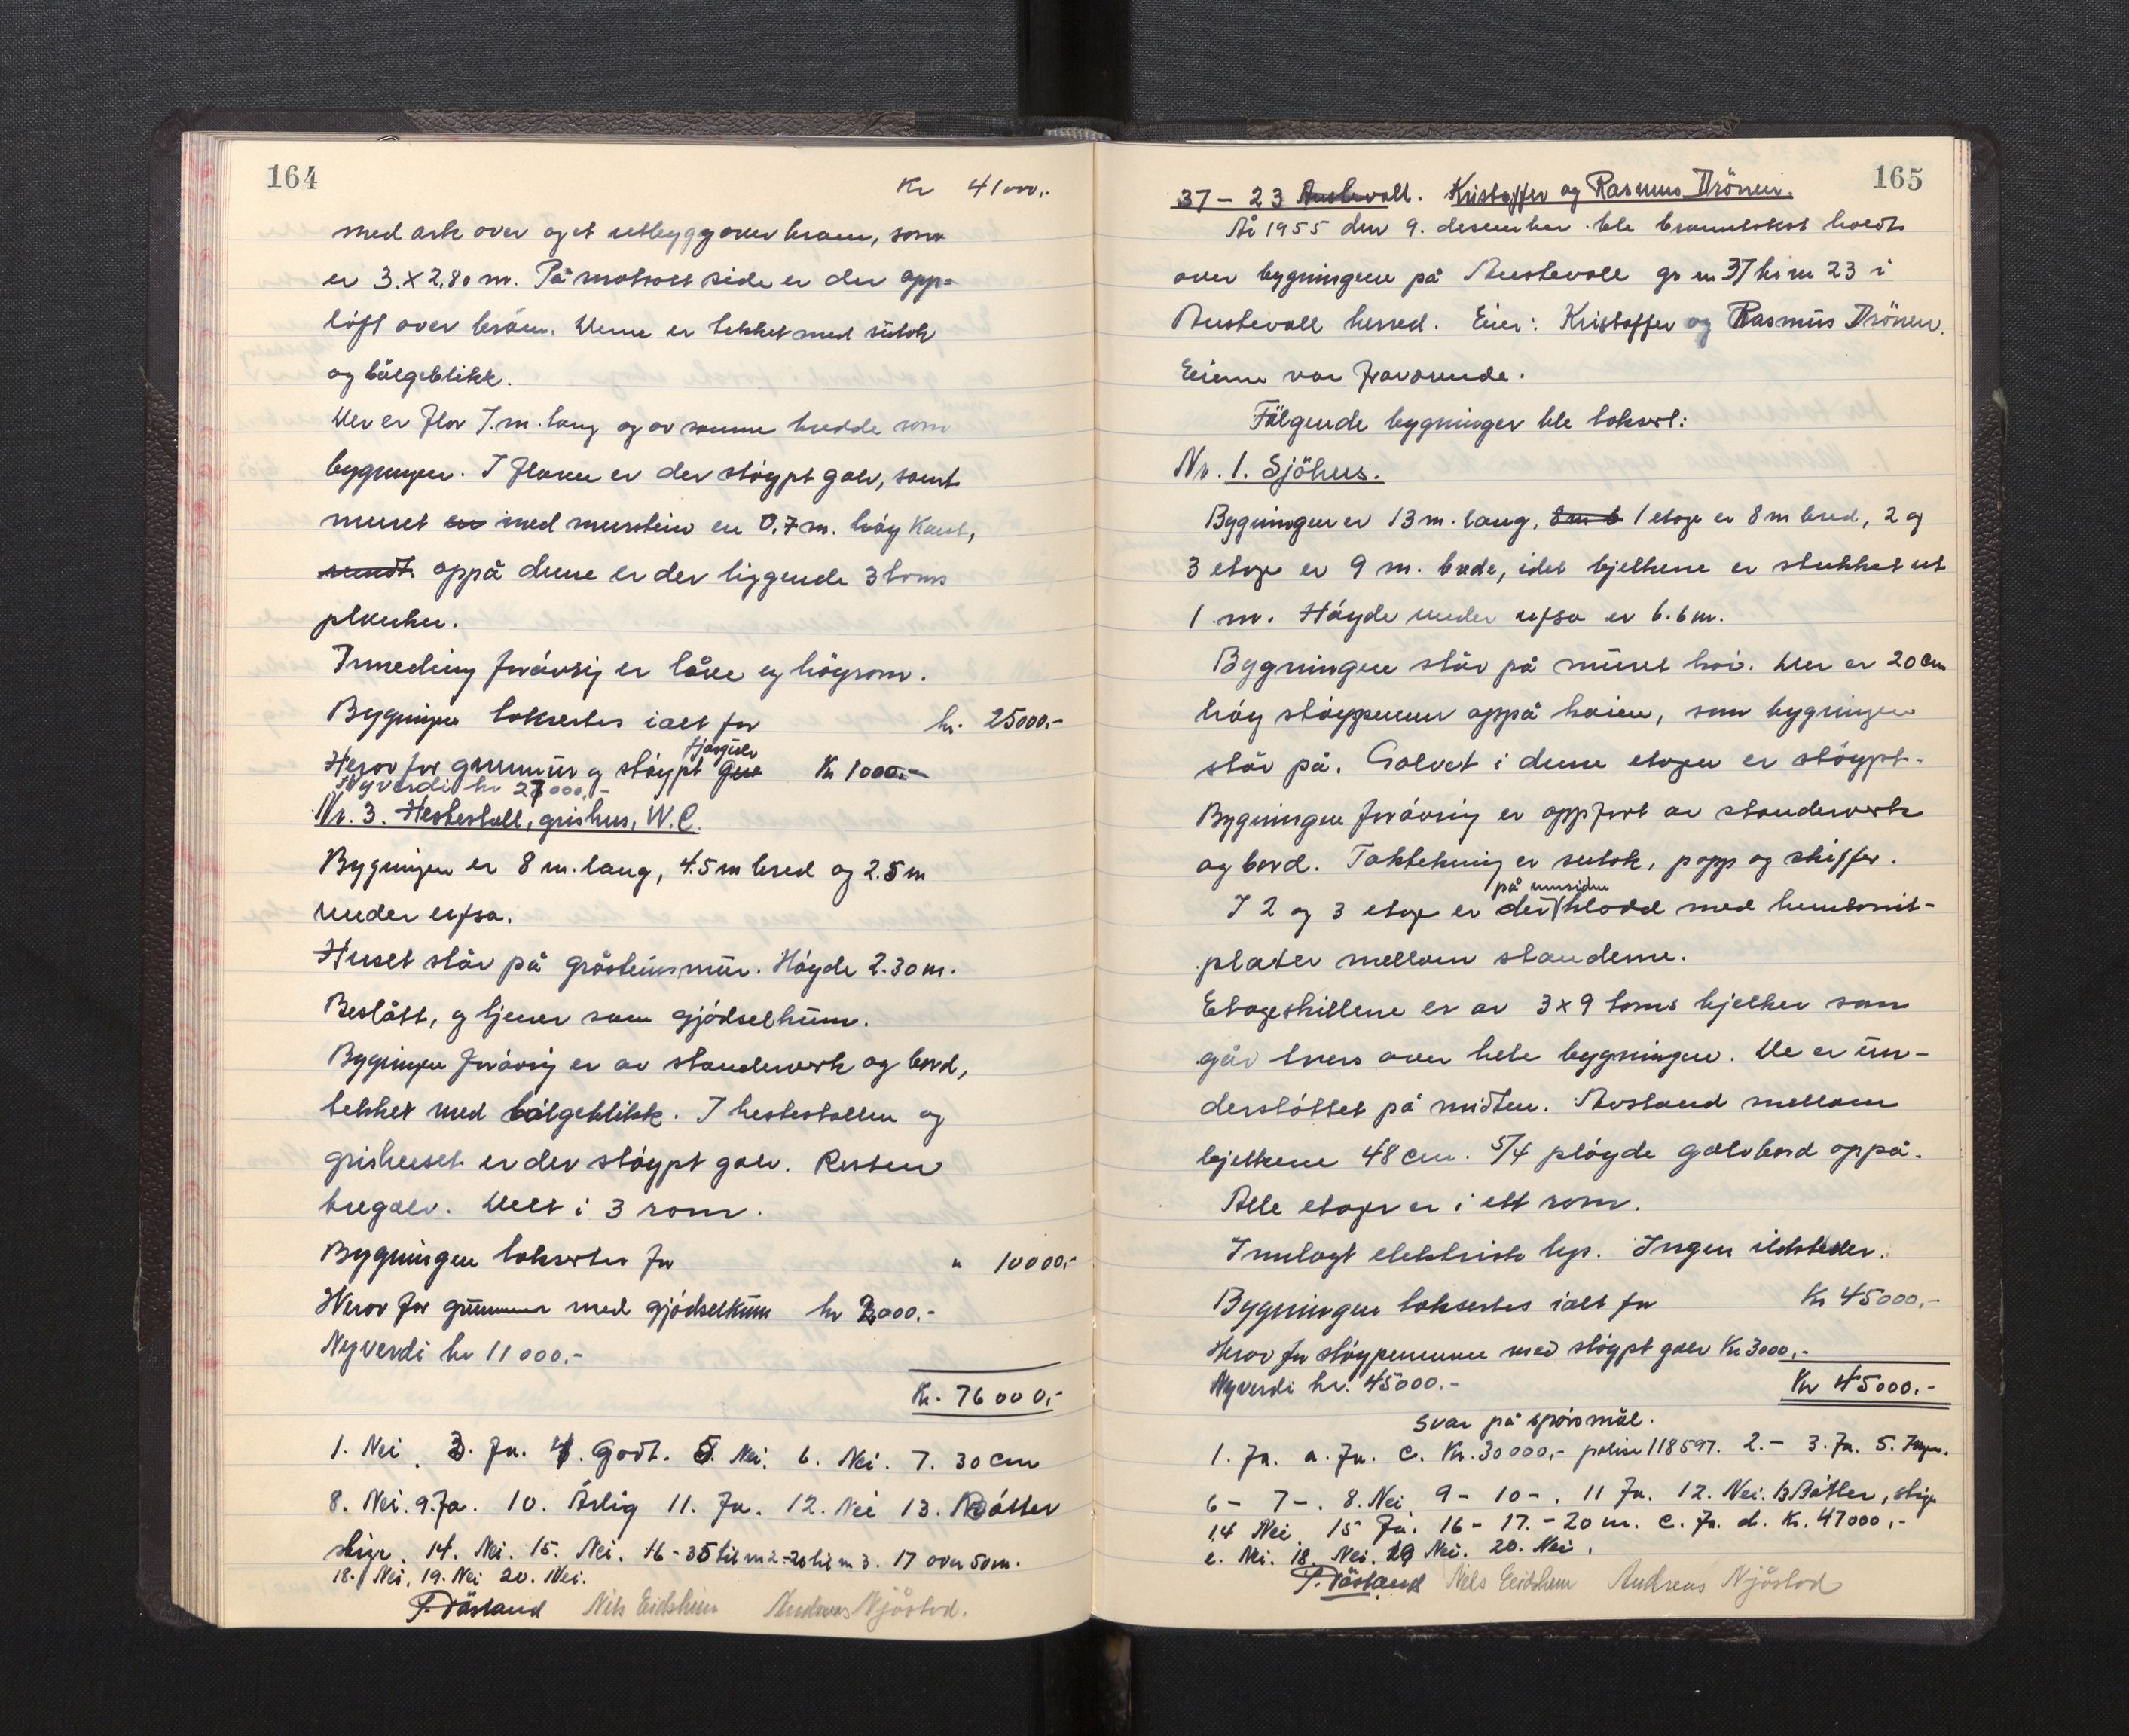 164
Kr 41000,-
med ark over og et utbygg over bruen, som
er 3.x2,80 m. På motsatt side er der opp-
löft over bruen. Uene er tekket med sutak
og bölgeblikk.
Der er flor 7.m. lang og av samme bredde som
bygningen. I floren er der stöypt golv, samt
muret en med murstein en 0.7 m. höy kant,
rundt. oppå denne er der liggende 3 toms
planker.
Innredning forövrig er låve og höyrom.
Bygningen takseres ialt for kr. 25000.-
Herav for grunnmur og stöypt golv fjösgolv Kr 1000.-
Nyverdi kr 27000,-
Nr. 3. Hestestall, grishus, W.C.
Bygningen er 8 m. lang, 4.5 m bred og 2.5 m
under ufsa.
Huset står på gråsteinsmur. Höyde 2.30 m.
Beslått, og tjener som gjödselkum.
Bygningen forövrig er av standerverk og bord,
tekket med bölgeblikk. I hestestallen og
grishuset er der stöypt golv. Resten
tregolv. Delt i 3 rom.
Bygningen takseres for " 10000,-
Herav for grunnmur med gjödselkum kr 3000.-
Nyverdi kr 11000.-
Kr. 76000,-
1. Nei. 3. Ja. 4. Godt. 5. Nei. 6. Nei. 7. 30 cm
8. Nei. 9. Ja. 10. Årlig 11. Ja. 12. Nei 13. Bötter
stige. 14. Nei. 15. Nei. 16-35 til nr 2-20 til nr 3. 17 over 50 m.
18. Nei. 19. Nei 20. Nei.
T. Dåsland Nils Eidsheim Andreas Njåstad.
165
37 – 23 Austevoll. Kristoffer og Rasmus Drönen.
År 1955 den 9. desember ble branntakst holdt
over bygningene på Austevoll gr nr 37 br nr 23 i
Austevoll herred. Eier: Kristoffer og Rasmus Drönen.
Eierne var fraværende.
Fölgende bygninger ble taksert:
Nr. 1. Sjöhus.
Bygningen er 13 m. lang, 8 m b 1 etage er 8 m bred, 2 og
3 etage er 9 m. brede, idet bjelkene er stukket ut
1 m. Höyde under ufsa er 6.6 m.
Bygningen står på muret kai. Der er 20 cm
höy stöypemur oppå kaien, som bygningen
står på. Golvet i denne etagen er stöypt.
Bygningen forövrig er oppfört av standerverk
og bord. Taktekning er sutak, papp og skiffer.
I 2 og 3 etage er der på innsiden kledd med huntonit-
plater mellom standerne.
Etageskillene er av 3 x 9 toms bjelker som
går tvers over hele bygningen. De er un-
derstöttet på midten. Avstand mellom
bjelkene 48 cm. 5/4 plöyde golvbord oppå.
Alle etager er i ett rom.
Innlagt elektrisk lys. Ingen ildsteder.
Bygningen takseres ialt for Kr 45000,-
Herav for stöypemuren med stöypt golv Kr 3000,-
Nyverdi kr. 45000.- Kr 45000.-
Svar på spörsmål.
1. Ja. a. Ja. c. Kr. 30000,- polise 118597. 2.- 3. Ja. 5. Ingen.
6- 7-. 8. Nei 9- 10-. 11 Ja. 12. Nei. 13 Bötter, stige
14 Nei 15 Ja. 16- 17.- 20 m. c. Ja. d. Kr. 47000,-
e. Nei. 18. Nei. 19 Nei. 20. Nei.
T. Dåsland Nils Eidsheim Andreas Njåstad